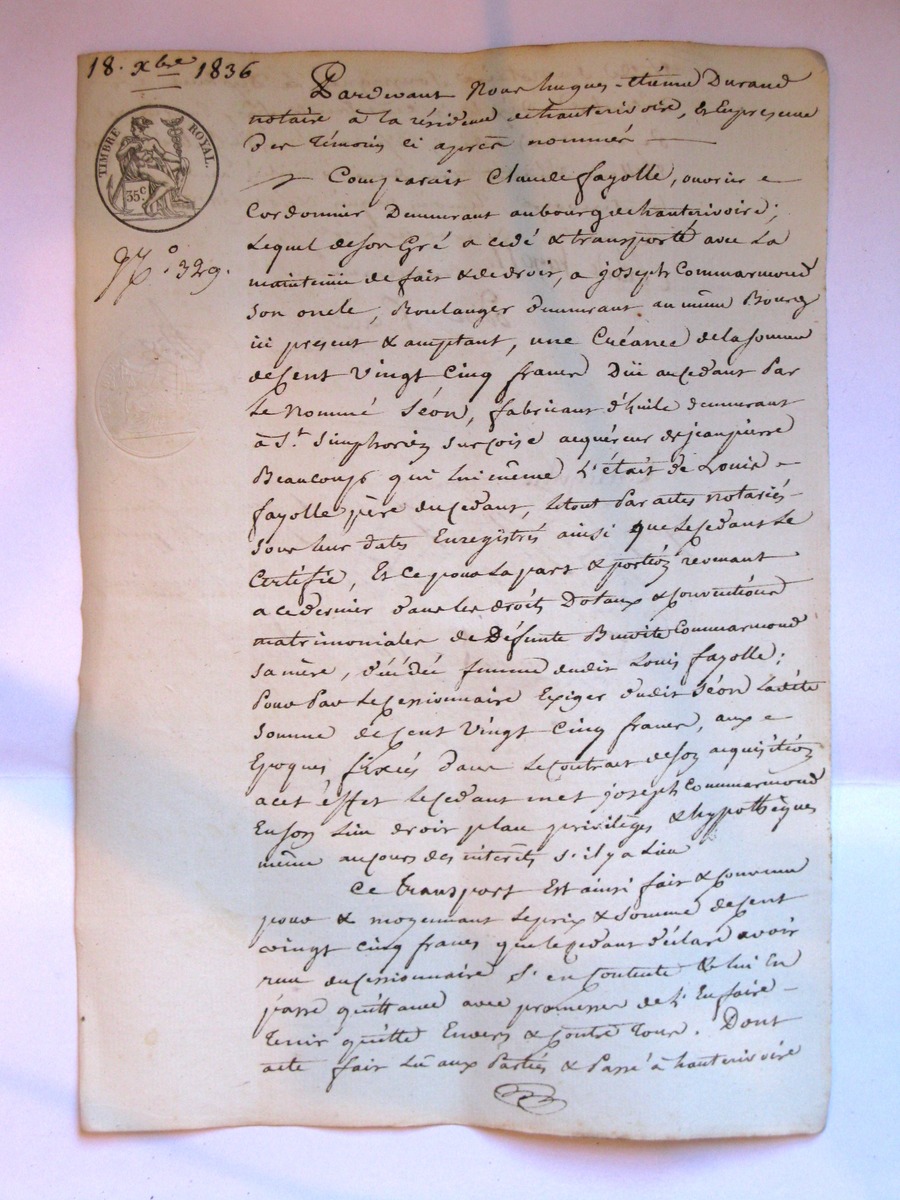 18. xbre 1836
TIMBRE ROYAL.
35 c
No 329.
Pardevant Nous hugues-étiéne Durand
notaire à la résidence de hauterivoire, & En presence
Des témoins ci après nommés
Comparait Claude fayolle, ouvrier
Cordonnier Demeurant au bourg de hauterivoire;
Lequel de son Gré a cedé & transporté avec La
maintenue de fait & de droit, a joseph Commarmond
son oncle, Boulanger demeurant au même Bourg
ici present & acceptant, une Créance de la somme
de Cent Vingt Cinq francs Düe au Cedant Par
Le Nommé Séon, fabricant d'huile demeurant
à St. Simphorien sur coise acquéreur de jean pierre
Beaucoup qui lui même L'était de Louis
fayolle père du Cedant, Le tout Par actes notariés
sous leur dates Enregistrés ainsi que Le Cedant Le
Certifie, Et Ce pour La part & portion revenant
a ce dernier dans les droits Dotaux & Conventions
matrimoniales de Défunte Benoite Commarmond
sa mère, décédée femme dudit Louis fayolle;
Pour Par Le Cessionnaire Exiger dudit Séon La dite
somme de Cent Vingt Cinq francs, aux
Epoques fixées dans Le Contrat de son acquisition
a cet éffet Le Cedant met joseph Commarmond
En son Lieu droit place privilèges & hypothèques
même au cours des interêts s'il y a Lieu
Ce transport Est ainsi fait & Convenu
pour & moyennant Le prix & somme de Cent
vingt cinq francs que le Cedant déclare avoir
reçu du Cessionnaire s'en Contente & Lui En
passe quittance avec promesse de l'En faire
tenir quitte Envers & Contre Tous. Dont
acte fait Lû aux Parties & Passé à hauterivoire